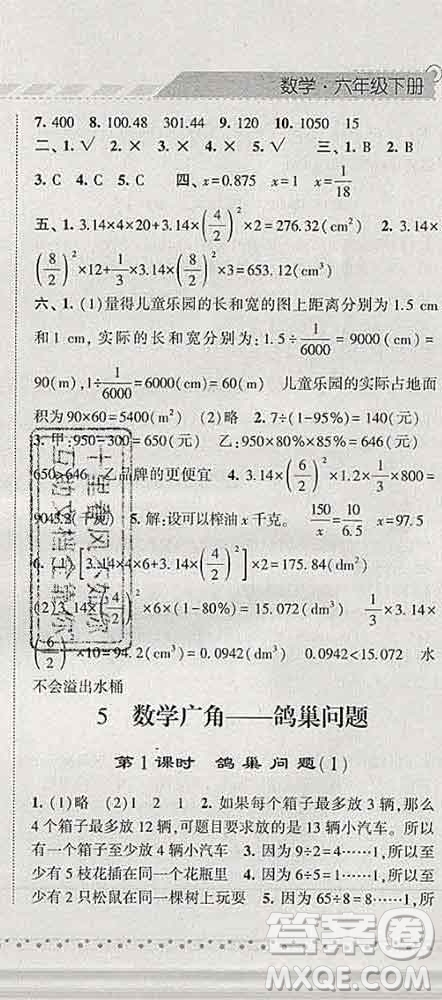 数学·六年级下册
7. 400  8. 100.48  301.44  9. 120  10. 1050  15
二、1. √  2. ×  3. ×  4. ×  5. √  三、1. B  2. B
3. C  4. C  5. C  四、x=0.875  x=1  x=1/18
五、1. 3.14×4×20+3.14×(4/2)²×2=276.32(cm²)  2. 3.14×
(8/2)²×12+1/3×3.14×(8/2)²×3=653.12(cm³)
六、1. (1)量得儿童乐园的长和宽的图上距离分别为1.5 cm
和1 cm，实际的长和宽分别为：1.5÷1/6000=9000(cm)=
90(m)，1÷1/6000=6000(cm)=60(m)  儿童乐园的实际占地面
积为90×60=5400(m²)  (2)略  2. 7÷(1-95%)=140(元)
3. 甲：950-300=650(元)  乙：950×80%×85%=646(元)
650>646  品牌的更便宜  4. 3.14×(6/2)²×1.2×1/3×800=
9043.2(千克)  5. 解：设可以榨油x千克。150/x=10/6.5  x=97.5
6. (1)[3.14×4×6+3.14×(4/2)²]×2=175.84(dm²)
(2)3.14×(4/2)²×6×(1-80%)=15.072(dm³)  1/3×3.14×
(6/2)²×10=94.2(cm³)=0.0942(dm³)  0.0942<15.072  水
不会溢出水桶
5  数学广角——鸽巢问题
第1课时  鸽巢问题(1)
1. (1)略  (2)1  2  1  2. 如果每个箱子最多放3辆，那么
4个箱子最多放12辆，可题目要求放的是13辆小汽车。所
以有一个箱子至少放4辆小汽车  3. 因为9÷2=4……1，所以至
少有5枝花插在同一个花瓶里  4. 因为6÷5=1……1，所以至
少有2只松鼠在同一棵树上玩耍  5. 因为65÷8=8……1，所
十里春风不如你
互助文档全靠你
答案圈
MXQE.COM